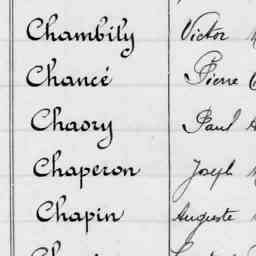 Chambily Victor
Chancé Pierre
Chaory Paul
Chaperon Joseph
Chapin Auguste